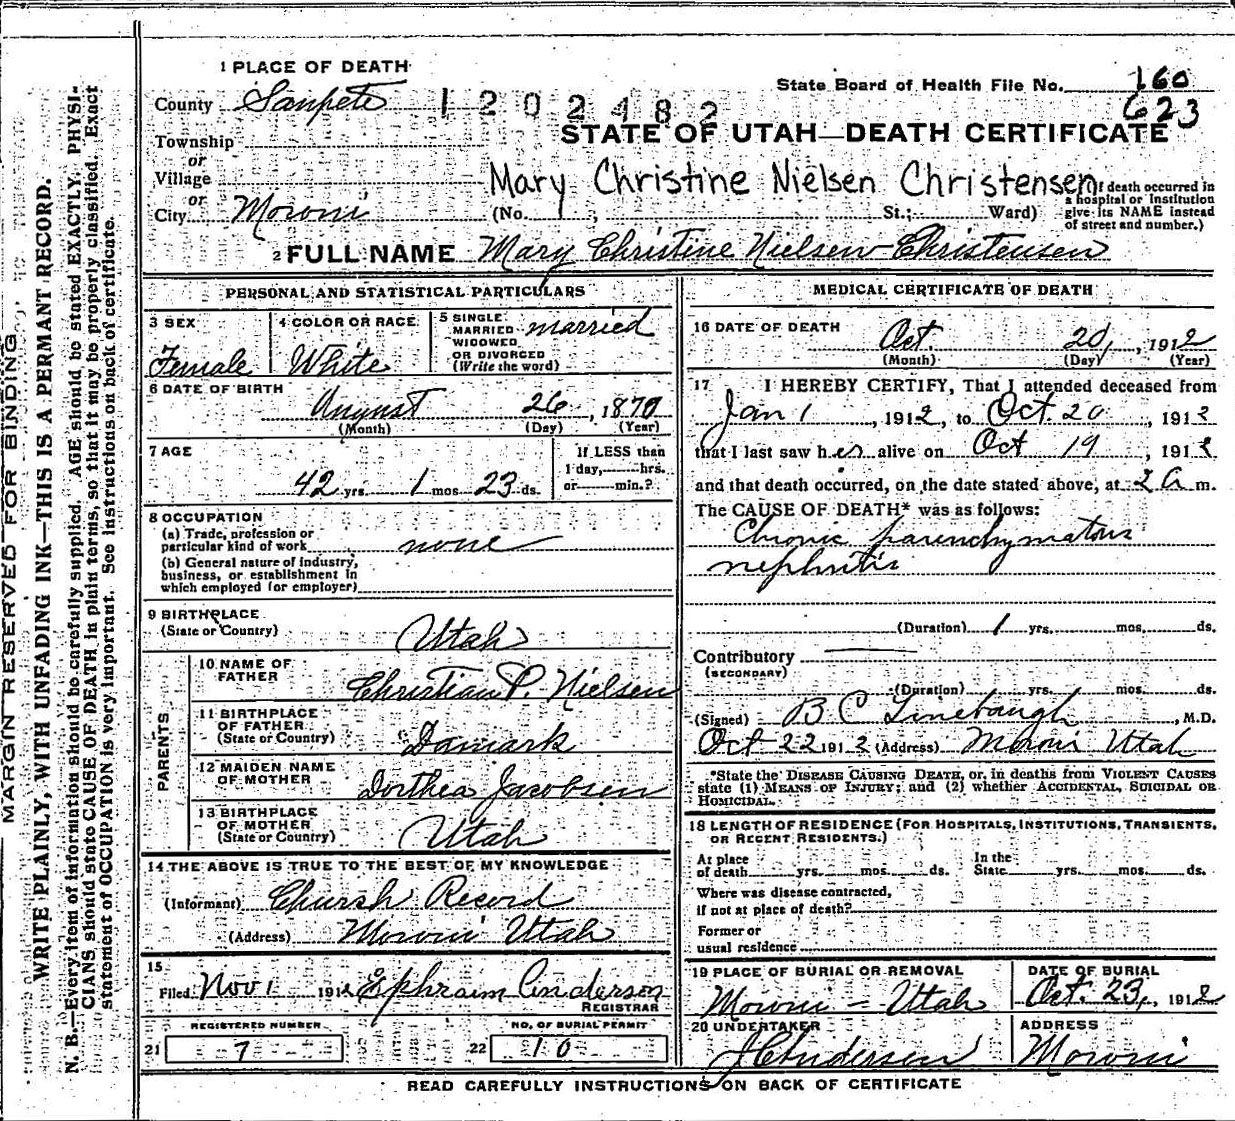 MARGIN RESERVED FOR BINDING
WRITE PLAINLY, WITH UNFADING INK—THIS IS A PERMANT RECORD.
N. B.—Every item of information should be carefully supplied. AGE should be stated EXACTLY. PHYSI-
CIANS should state CAUSE OF DEATH in plain terms, so that it may be properly classified. Exact
statement of OCCUPATION is very important. See instructions on back of certificate.
1 PLACE OF DEATH
County Sanpete
1202482
State Board of Health File No. 160
623
STATE OF UTAH—DEATH CERTIFICATE
Township
or
Village
or
City Moroni
Mary Christine Nielsen Christensen
(No. ; St.; Ward)
(If death occurred in
a hospital or institution
give its NAME instead
of street and number.)
2 FULL NAME Mary Christine Nielsen Christensen
PERSONAL AND STATISTICAL PARTICULARS
3 SEX
Female
4 COLOR OR RACE
White
5 SINGLE
MARRIED
WIDOWED
OR DIVORCED
(Write the word)
married
6 DATE OF BIRTH
August 26, 1870
(Month) (Day) (Year)
7 AGE
42 yrs. 1 mos. 23 ds.
If LESS than
1 day, hrs.
or min.?
8 OCCUPATION
(a) Trade, profession or
particular kind of work none
(b) General nature of industry,
business, or establishment in
which employed (or employer)
9 BIRTHPLACE
(State or Country) Utah
PARENTS
10 NAME OF
FATHER Christian P. Nielsen
11 BIRTHPLACE
OF FATHER
(State or Country) Damark
12 MAIDEN NAME
OF MOTHER Dorthea Jacobsen
13 BIRTHPLACE
OF MOTHER
(State or Country) Utah
14 THE ABOVE IS TRUE TO THE BEST OF MY KNOWLEDGE
(Informant) Chursh Record
(Address) Moroni Utah
15
Filed Nov 1 1912 Ephraim Anderson
REGISTRAR
REGISTERED NUMBER
21 7
NO. OF BURIAL PERMIT
22 10
MEDICAL CERTIFICATE OF DEATH
16 DATE OF DEATH Oct. 20, 1912
(Month) (Day) (Year)
17 I HEREBY CERTIFY, That I attended deceased from
Jan 1, 1912, to Oct. 20, 1912
that I last saw her alive on Oct 19, 1912
and that death occurred, on the date stated above, at 2 A m.
The CAUSE OF DEATH* was as follows:
Chronic parenchymatous
nephritis
(Duration) 1 yrs. mos. ds.
Contributory
(SECONDARY)
(Duration) yrs. mos. ds.
(Signed) B C Linebaugh, M.D.
Oct 22 1912 (Address) Moroni Utah
*State the DISEASE CAUSING DEATH, or, in deaths from VIOLENT CAUSES
state (1) MEANS OF INJURY; and (2) whether ACCIDENTAL, SUICIDAL OR
HOMICIDAL.
18 LENGTH OF RESIDENCE (FOR HOSPITALS, INSTITUTIONS, TRANSIENTS,
OR RECENT RESIDENTS.)
At place
of death yrs. mos. ds.
In the
State yrs. mos. ds.
Where was disease contracted,
if not at place of death?
Former or
usual residence
19 PLACE OF BURIAL OR REMOVAL
Moroni - Utah
DATE OF BURIAL
Oct. 23, 1912
20 UNDERTAKER
J C Anderson
ADDRESS
Moroni
READ CAREFULLY INSTRUCTIONS ON BACK OF CERTIFICATE